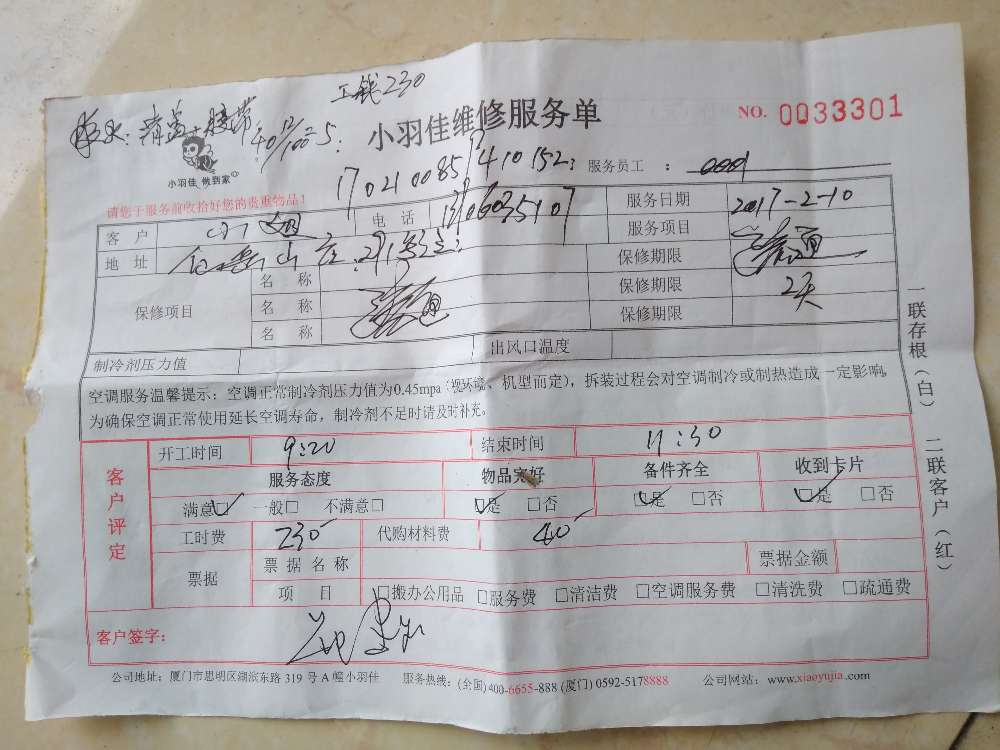 工钱230
胶带
小羽佳维修服务单
NO. 0033301
小羽佳 做到家
17021008594410152
服务员工 : 0001
请您于服务前收拾好您的贵重物品!
客 户 电 话 服务日期 2017-2-10
地 址 山庄 服务项目
保修项目 名 称 保修期限
名 称 疏通 保修期限 2天
名 称 保修期限
制冷剂压力值 出风口温度
空调服务温馨提示:空调正常制冷剂压力值为0.45mpa(视环境、机型而定),拆装过程会对空调制冷或制热造成一定影响,
为确保空调正常使用延长空调寿命,制冷剂不足时请及时补充。
一联存根(白) 二联客户(红)
客户评定
开工时间 9:20 结束时间 11:30
服务态度 物品完好 备件齐全 收到卡片
满意□ 一般□ 不满意□ □是 □否 □是 □否 □是 □否
工时费 230 代购材料费 40
票据 票据名称 票据金额
项 目 □搬办公用品 □服务费 □清洁费 □空调服务费 □清洗费 □疏通费
客户签字:
公司地址:厦门市思明区湖滨东路 319 号 A 幢小羽佳 服务热线:(全国)400-6655-888 (厦门) 0592-5178888 公司网站:www.xiaoyujia.com